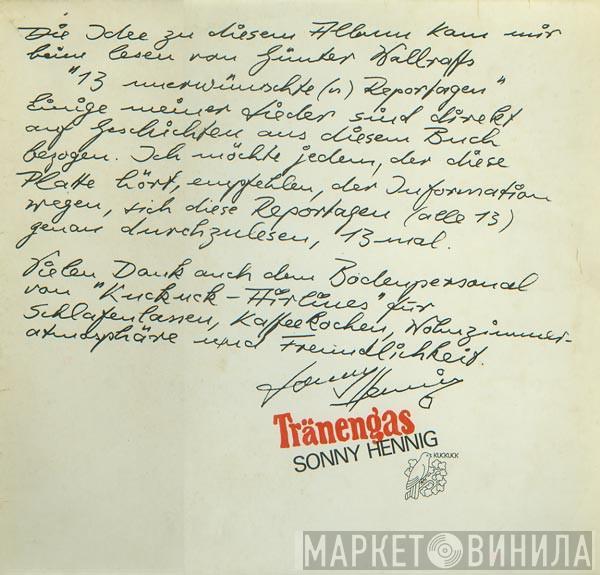 Die Idee zu diesem Album kam mir
beim lesen von Günter Wallraffs
"13 unerwünschte(n) Reportagen"
Einige meiner Lieder sind direkt
auf Geschichten aus diesem Buch
bezogen. Ich möchte jedem, der diese
Platte hört, empfehlen, der Information
wegen, sich diese Reportagen (alle 13)
genau durchzulesen, 13 mal.
Vielen Dank auch dem Bodenpersonal
von "Kuckuck-Airlines" für
Schlafenlassen, Kaffeekochen, Wohnzimmer-
atmosphäre und Freundlichkeit.
Sonny Hennig
Tränengas
SONNY HENNIG
KUCKUCK
МАРКЕТ ВИНИЛА